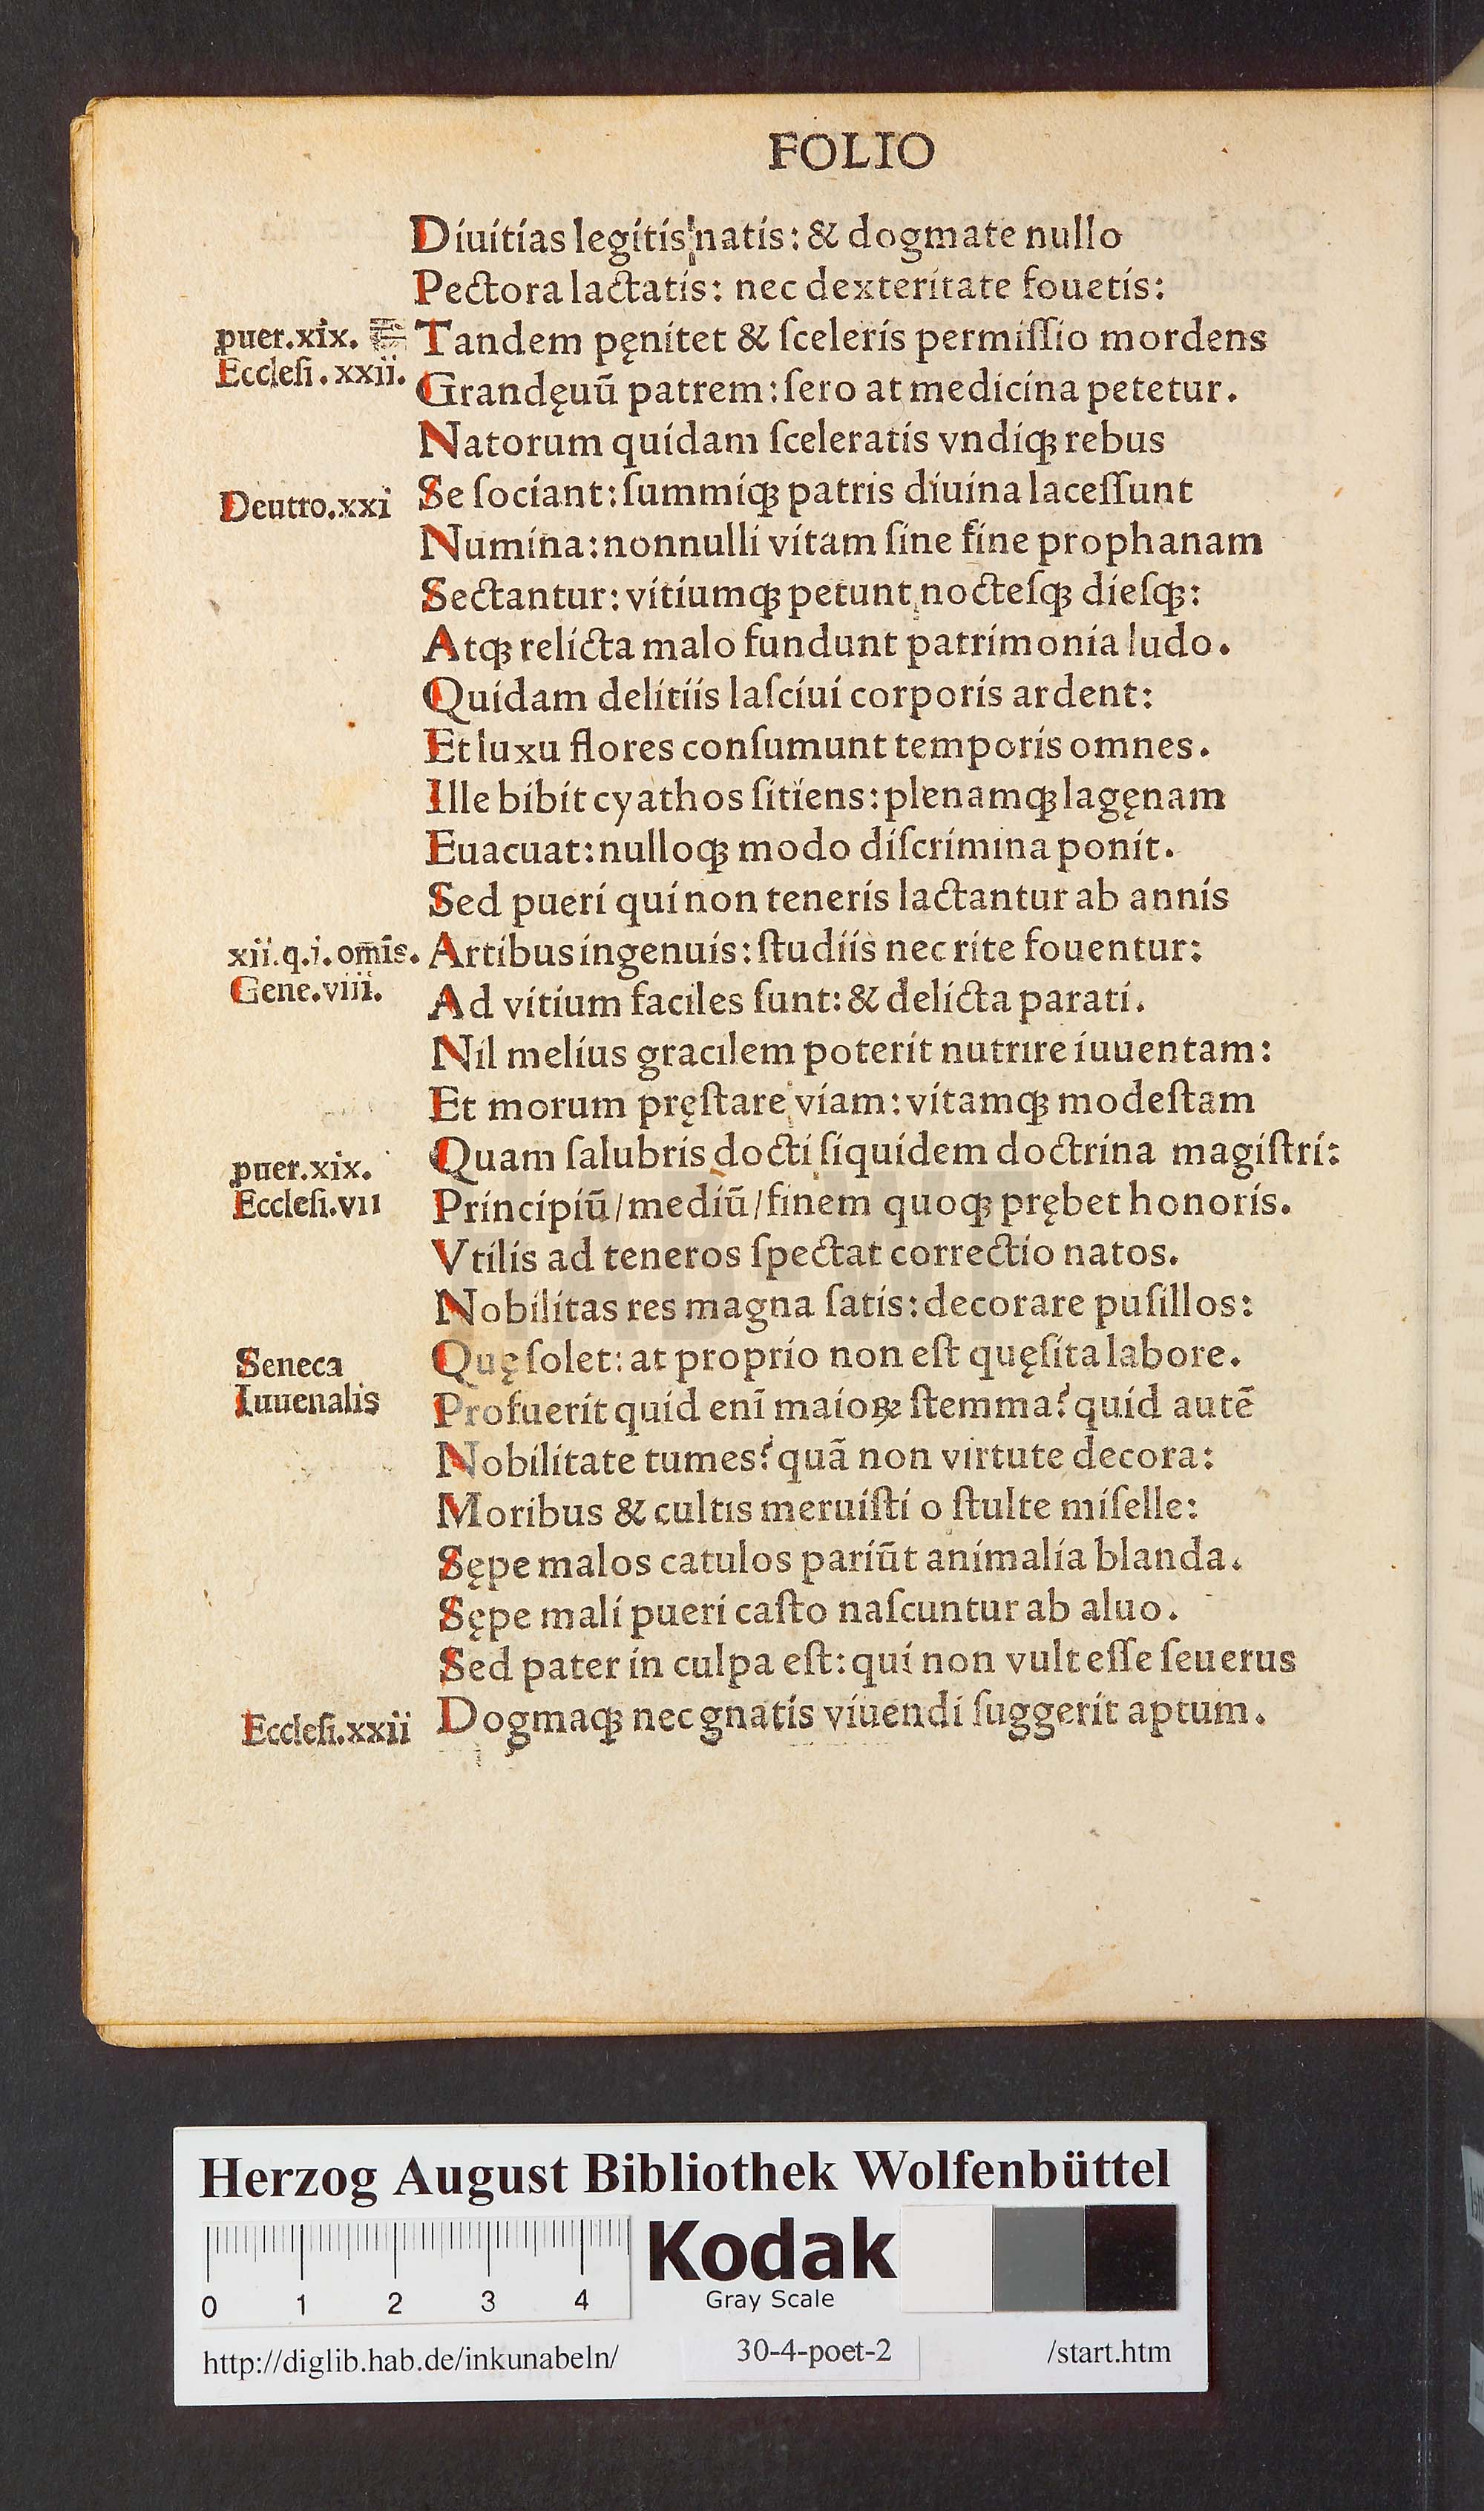 FOLIO
Diuitias legitis natis: & dogmate nullo
Pectora lactatis: nec dexteritate fouetis:
ꝓuer.xix. Tandem pęnitet & ſceleris permiſſio mordens
Eccleſi.xxii. Grandęuū patrem: ſero at medicina petetur.
Natorum quidam ſceleratis vndiqꝫ rebus
Deutro.xxi Se ſociant: ſummiqꝫ patris diuina laceſſunt
Numina: nonnulli vitam ſine fine prophanam
Sectantur: vitiumqꝫ petunt nocteſqꝫ dieſqꝫ:
Atqꝫ relicta malo fundunt patrimonia ludo.
Quidam delitiis laſciui corporis ardent:
Et luxu flores conſumunt temporis omnes.
Ille bibit cyathos ſitiens: plenamqꝫ lagęnam
Euacuat: nulloqꝫ modo diſcrimina ponit.
Sed pueri qui non teneris lactantur ab annis
xii.q.i.omīs. Artibus ingenuis: ſtudiis nec rite fouentur:
Gene.viii. Ad vitium faciles ſunt: & delicta parati.
Nil melius gracilem poterit nutrire iuuentam:
Et morum pręſtare viam: vitamqꝫ modeſtam
ꝓuer.xix. Quam ſalubris docti ſiquidem doctrina magiſtri:
Eccleſi.vii Principiū/mediū/finem quoqꝫ prębet honoris.
Vtilis ad teneros ſpectat correctio natos.
Nobilitas res magna ſatis: decorare puſillos:
Seneca Quę ſolet: at proprio non eſt quęſita labore.
Iuuenalis Profuerit quid enī maioꝝ ſtemma? quid autē
Nobilitate tumes? quā non virtute decora:
Moribus & cultis meruiſti o ſtulte miſelle:
Sępe malos catulos pariūt animalia blanda.
Sępe mali pueri caſto naſcuntur ab aluo.
Sed pater in culpa eſt: qui non vult eſſe ſeuerus
Eccleſi.xxii Dogmaqꝫ nec gnatis viuendi ſuggerit aptum.
Herzog August Bibliothek Wolfenbüttel
0 1 2 3 4
Kodak
Gray Scale
http://diglib.hab.de/inkunabeln/ 30-4-poet-2 /start.htm